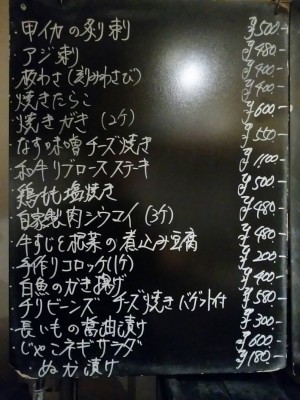 ・甲イカの刺 ¥500-
・アジ刺 ¥480-
・板わさ(刻みわさび) ¥400-
・焼きたらこ ¥400-
・焼きがき (2ケ) ¥600-
・なす味噌チーズ焼き ¥550-
・和牛リブロースステキ ¥1100-
・鶏もも塩焼き ¥500-
・自家製肉シウコイ (3ケ) ¥480-
・牛すじと の煮込み豆腐 ¥480-
・手作りコロッケ(1ケ) ¥200-
・白魚のかき揚げ ¥400-
・チリビーンズ チーズ焼き バゲット付 ¥580-
・長いもの 油漬け ¥300-
・じゃこネギサラダ ¥600-
・ぬカ漬け ¥180-